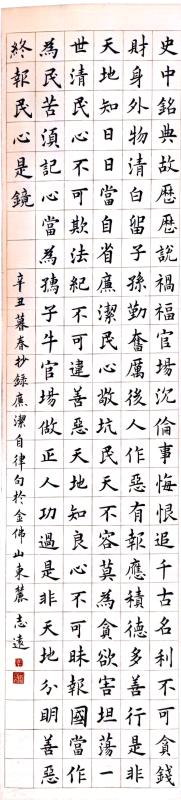 史中銘典故歷歷說禍福官場沉倫事悔恨追千古名利不可貪錢
財身外物清白留子孫勤奮厲後人作惡有報應積德多善行是非
天地知日日當自省廉潔民心敬坑民天不容莫為貪欲害坦蕩一
世清民心不可欺法紀不可違善惡天地知良心不可昧報國當作
為民苦須記心當為孺子牛官場做正人功過是非天地分明善惡
終報民心是鏡
辛丑暮春抄錄廉潔自律句於金佛山東麓志遠